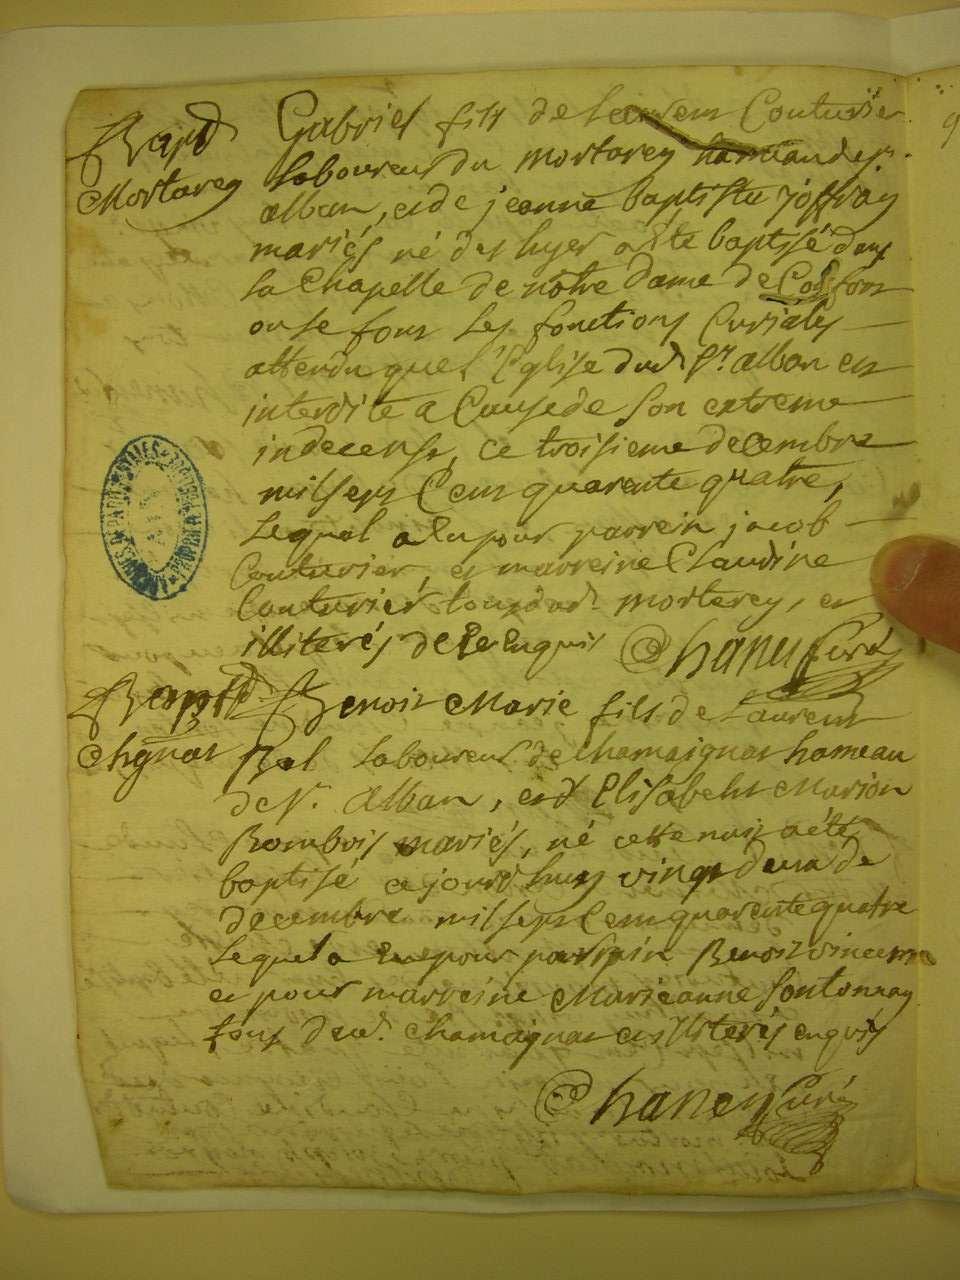 Bapt Gabriel fils de Laurens Couturier
Mortarey laboureur du mortarey hameau de st
alban, et de jeanne baptiste joffray
mariés né des hyer a été baptisé dans
la Chapelle de nôtre dame de
ou se font les fonctions Curiales
attendu que l'Eglise dud st. alban est
interdite a Cause de Son extreme
indecense, ce troisieme decembre
mil sept Cent quarente quatre,
Lequel a Eu pour parrein jacob
Couturier et marreine Claudine
Couturier tous dud. mortarey, et
illiterés de ce Enquis Chaney Curé
Bapt Benoit Marie fils de Laurent
Chgnat Bal laboureur de Chamaignat hameau
de st. Alban, et d'Elisabeht Marion
Bombois mariés, né cette nuit a été
baptisé ce jourd'huy vingt deux de
decembre mil sept Cent quarente quatre
Lequel a Eu pour parrein Benoit vincent
et pour marreine Marieanne fontonnay
tous dud. Chamaignat et illiterés enquis
Chaney Curé